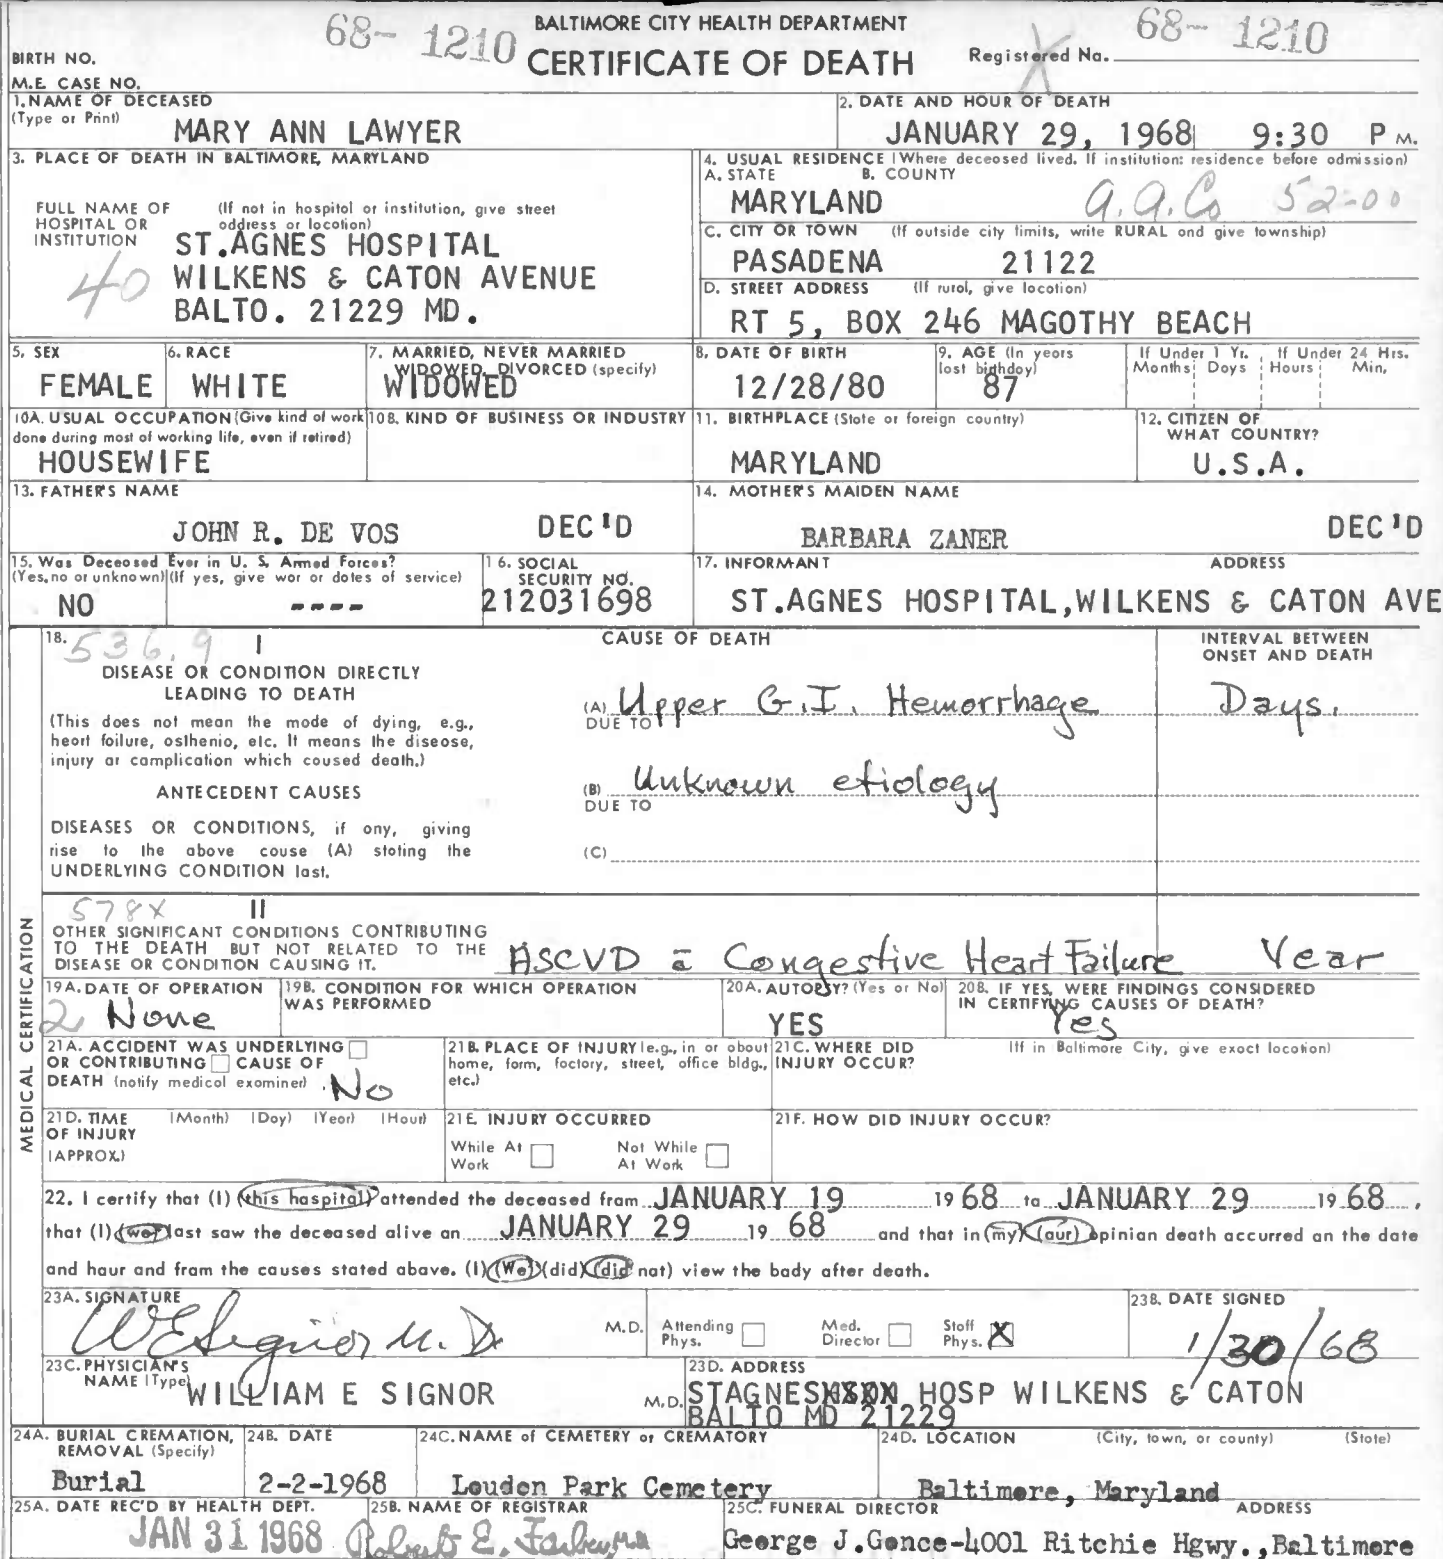 68- 1210
BALTIMORE CITY HEALTH DEPARTMENT
68- 1210
BIRTH NO.
CERTIFICATE OF DEATH
Registered No.
M.E. CASE NO.
1. NAME OF DECEASED
(Type or Print)
MARY ANN LAWYER
2. DATE AND HOUR OF DEATH
JANUARY 29, 1968 9:30 P M.
3. PLACE OF DEATH IN BALTIMORE, MARYLAND
FULL NAME OF HOSPITAL OR INSTITUTION
(If not in hospital or institution, give street address or location)
ST.AGNES HOSPITAL
40
WILKENS & CATON AVENUE
BALTO. 21229 MD.
4. USUAL RESIDENCE (Where deceased lived. If institution: residence before admission)
A. STATE B. COUNTY
MARYLAND A.A.Co 52-00
C. CITY OR TOWN (If outside city limits, write RURAL and give township)
PASADENA 21122
D. STREET ADDRESS (If rural, give location)
RT 5, BOX 246 MAGOTHY BEACH
5. SEX
FEMALE
6. RACE
WHITE
7. MARRIED, NEVER MARRIED
WIDOWED, DIVORCED (specify)
WIDOWED
8. DATE OF BIRTH
12/28/80
9. AGE (In years
last birthday)
87
If Under 1 Yr. If Under 24 Hrs.
Months Days Hours Min.
10A. USUAL OCCUPATION (Give kind of work
done during most of working life, even if retired)
HOUSEWIFE
10B. KIND OF BUSINESS OR INDUSTRY
11. BIRTHPLACE (State or foreign country)
MARYLAND
12. CITIZEN OF
WHAT COUNTRY?
U.S.A.
13. FATHER'S NAME
JOHN R. DE VOS DEC'D
14. MOTHER'S MAIDEN NAME
BARBARA ZANER DEC'D
15. Was Deceased Ever in U. S. Armed Forces?
(Yes, no or unknown) (If yes, give war or dates of service)
NO ----
16. SOCIAL
SECURITY NO.
212031698
17. INFORMANT ADDRESS
ST.AGNES HOSPITAL,WILKENS & CATON AVE
MEDICAL CERTIFICATION
18. 536.9 I
DISEASE OR CONDITION DIRECTLY
LEADING TO DEATH
(This does not mean the mode of dying, e.g.,
heart failure, asthenia, etc. It means the disease,
injury or complication which caused death.)
ANTECEDENT CAUSES
DISEASES OR CONDITIONS, if any, giving
rise to the above cause (A) stating the
UNDERLYING CONDITION last.
CAUSE OF DEATH
INTERVAL BETWEEN
ONSET AND DEATH
(A) Upper G.I. Hemorrhage Days.
DUE TO
(B) Unknown etiology
DUE TO
(C)
578X II
OTHER SIGNIFICANT CONDITIONS CONTRIBUTING
TO THE DEATH BUT NOT RELATED TO THE
DISEASE OR CONDITION CAUSING IT.
ASCVD c̄ Congestive Heart Failure Year
19A. DATE OF OPERATION
2 None
19B. CONDITION FOR WHICH OPERATION
WAS PERFORMED
20A. AUTOPSY? (Yes or No)
YES
20B. IF YES, WERE FINDINGS CONSIDERED
IN CERTIFYING CAUSES OF DEATH?
Yes
21A. ACCIDENT WAS UNDERLYING
OR CONTRIBUTING CAUSE OF
DEATH (notify medical examiner) No
21B. PLACE OF INJURY (e.g., in or about
home, farm, factory, street, office bldg.,
etc.)
21C. WHERE DID
INJURY OCCUR?
(If in Baltimore City, give exact location)
21D. TIME
OF INJURY
(APPROX.)
(Month) (Day) (Year) (Hour)
21E. INJURY OCCURRED
While At
Work
Not While
At Work
21F. HOW DID INJURY OCCUR?
22. I certify that (I) (this hospital) attended the deceased from JANUARY 19 1968 to JANUARY 29 1968,
that (I) (we) last saw the deceased alive on JANUARY 29 19 68 and that in (my) (our) opinion death occurred on the date
and hour and from the causes stated above. (I) (We) (did) (did not) view the body after death.
23A. SIGNATURE
WESignor M.D.
M.D.
Attending
Phys.
Med.
Director
Staff
Phys. X
23B. DATE SIGNED
1/30/68
23C. PHYSICIAN'S
NAME (Type)
WILLIAM E SIGNOR M.D.
23D. ADDRESS
STAGNES HOSP WILKENS & CATON
BALTO MD 21229
24A. BURIAL CREMATION,
REMOVAL (Specify)
Burial
24B. DATE
2-2-1968
24C. NAME of CEMETERY or CREMATORY
Louden Park Cemetery
24D. LOCATION (City, town, or county) (State)
Baltimore, Maryland
25A. DATE REC'D BY HEALTH DEPT.
JAN 31 1968
25B. NAME OF REGISTRAR
Robert E. Farber, M.D.
25C. FUNERAL DIRECTOR ADDRESS
George J.Gonce-4001 Ritchie Hgwy.,Baltimore